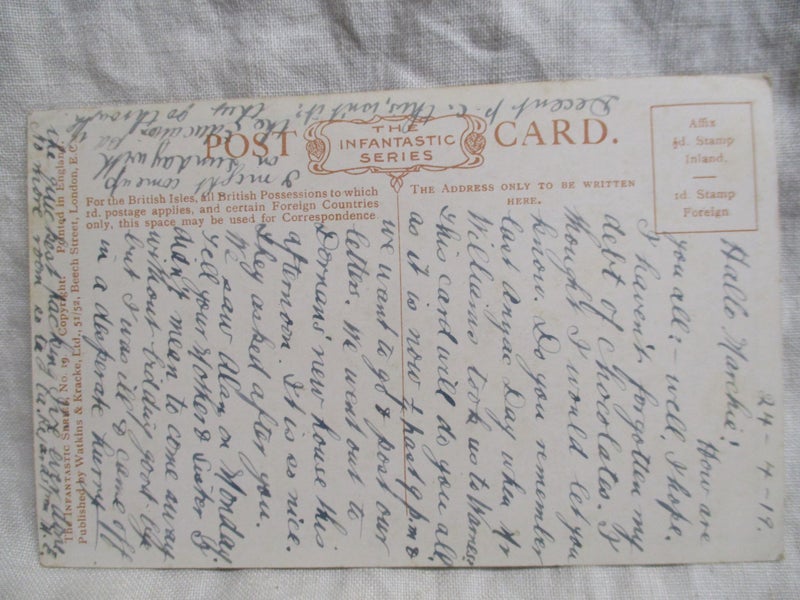 POST CARD.
THE
INFANTASTIC
SERIES
Affix
½d. Stamp
Inland.
1d. Stamp
Foreign
For the British Isles, all British Possessions to which
1d. postage applies, and certain Foreign Countries
only, this space may be used for Correspondence
THE ADDRESS ONLY TO BE WRITTEN
HERE.
THE INFANTASTIC SERIES, No. 19. Copyright. Printed in England.
Published by Watkins & Kracke, Ltd., 51/52, Beech Street, London, E.C.
24-4-19.
Hallo
How are
you all? - well, I hope.
I haven't forgotten my
debt of Chocolates. I
thought I would let you
know. Do you remember
last Anzac Day when Mr
Williams took us to
This card will do you all,
as it is now ½ past 9 p.m &
we want to go & post our
letters. We went out to
new house this
afternoon. It is so nice.
They asked after you.
We saw Alan on Monday.
Tell your Mother & Sister I
didn't mean to come away
without bidding good-bye
but I was ill & came off
in a desperate hurry
Decent p.c. this, isn't it?
I might come up
on Sunday with